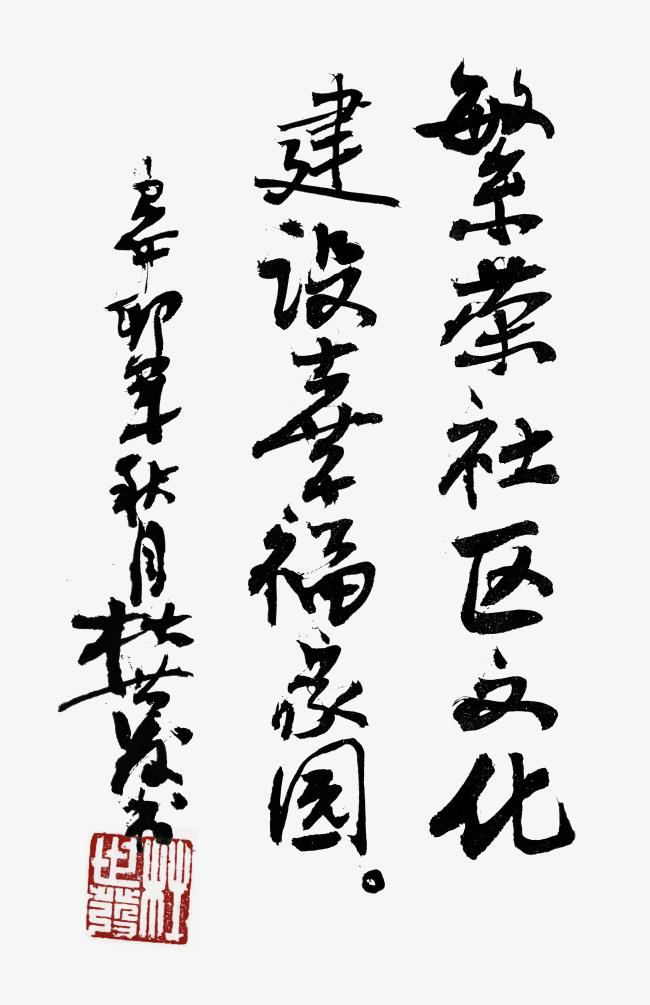 繁荣社区文化
建设幸福家园。
辛卯年秋月杜世发书
杜世發